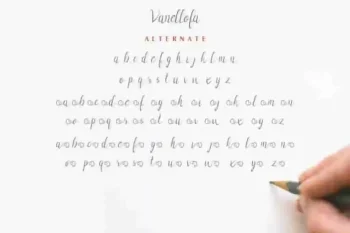 Vanellofa
ALTERNATE
a b c d e f g h i j k l m n
o p q r s t u v w x y z
aa ab ac ad ae af ag ah ai aj ak al am an
ao ap aq ar as at au av aw ax ay az
ao bo co do eo fo go ho io jo ko lo mo no
oo po qo ro so to uo vo wo xo yo zo